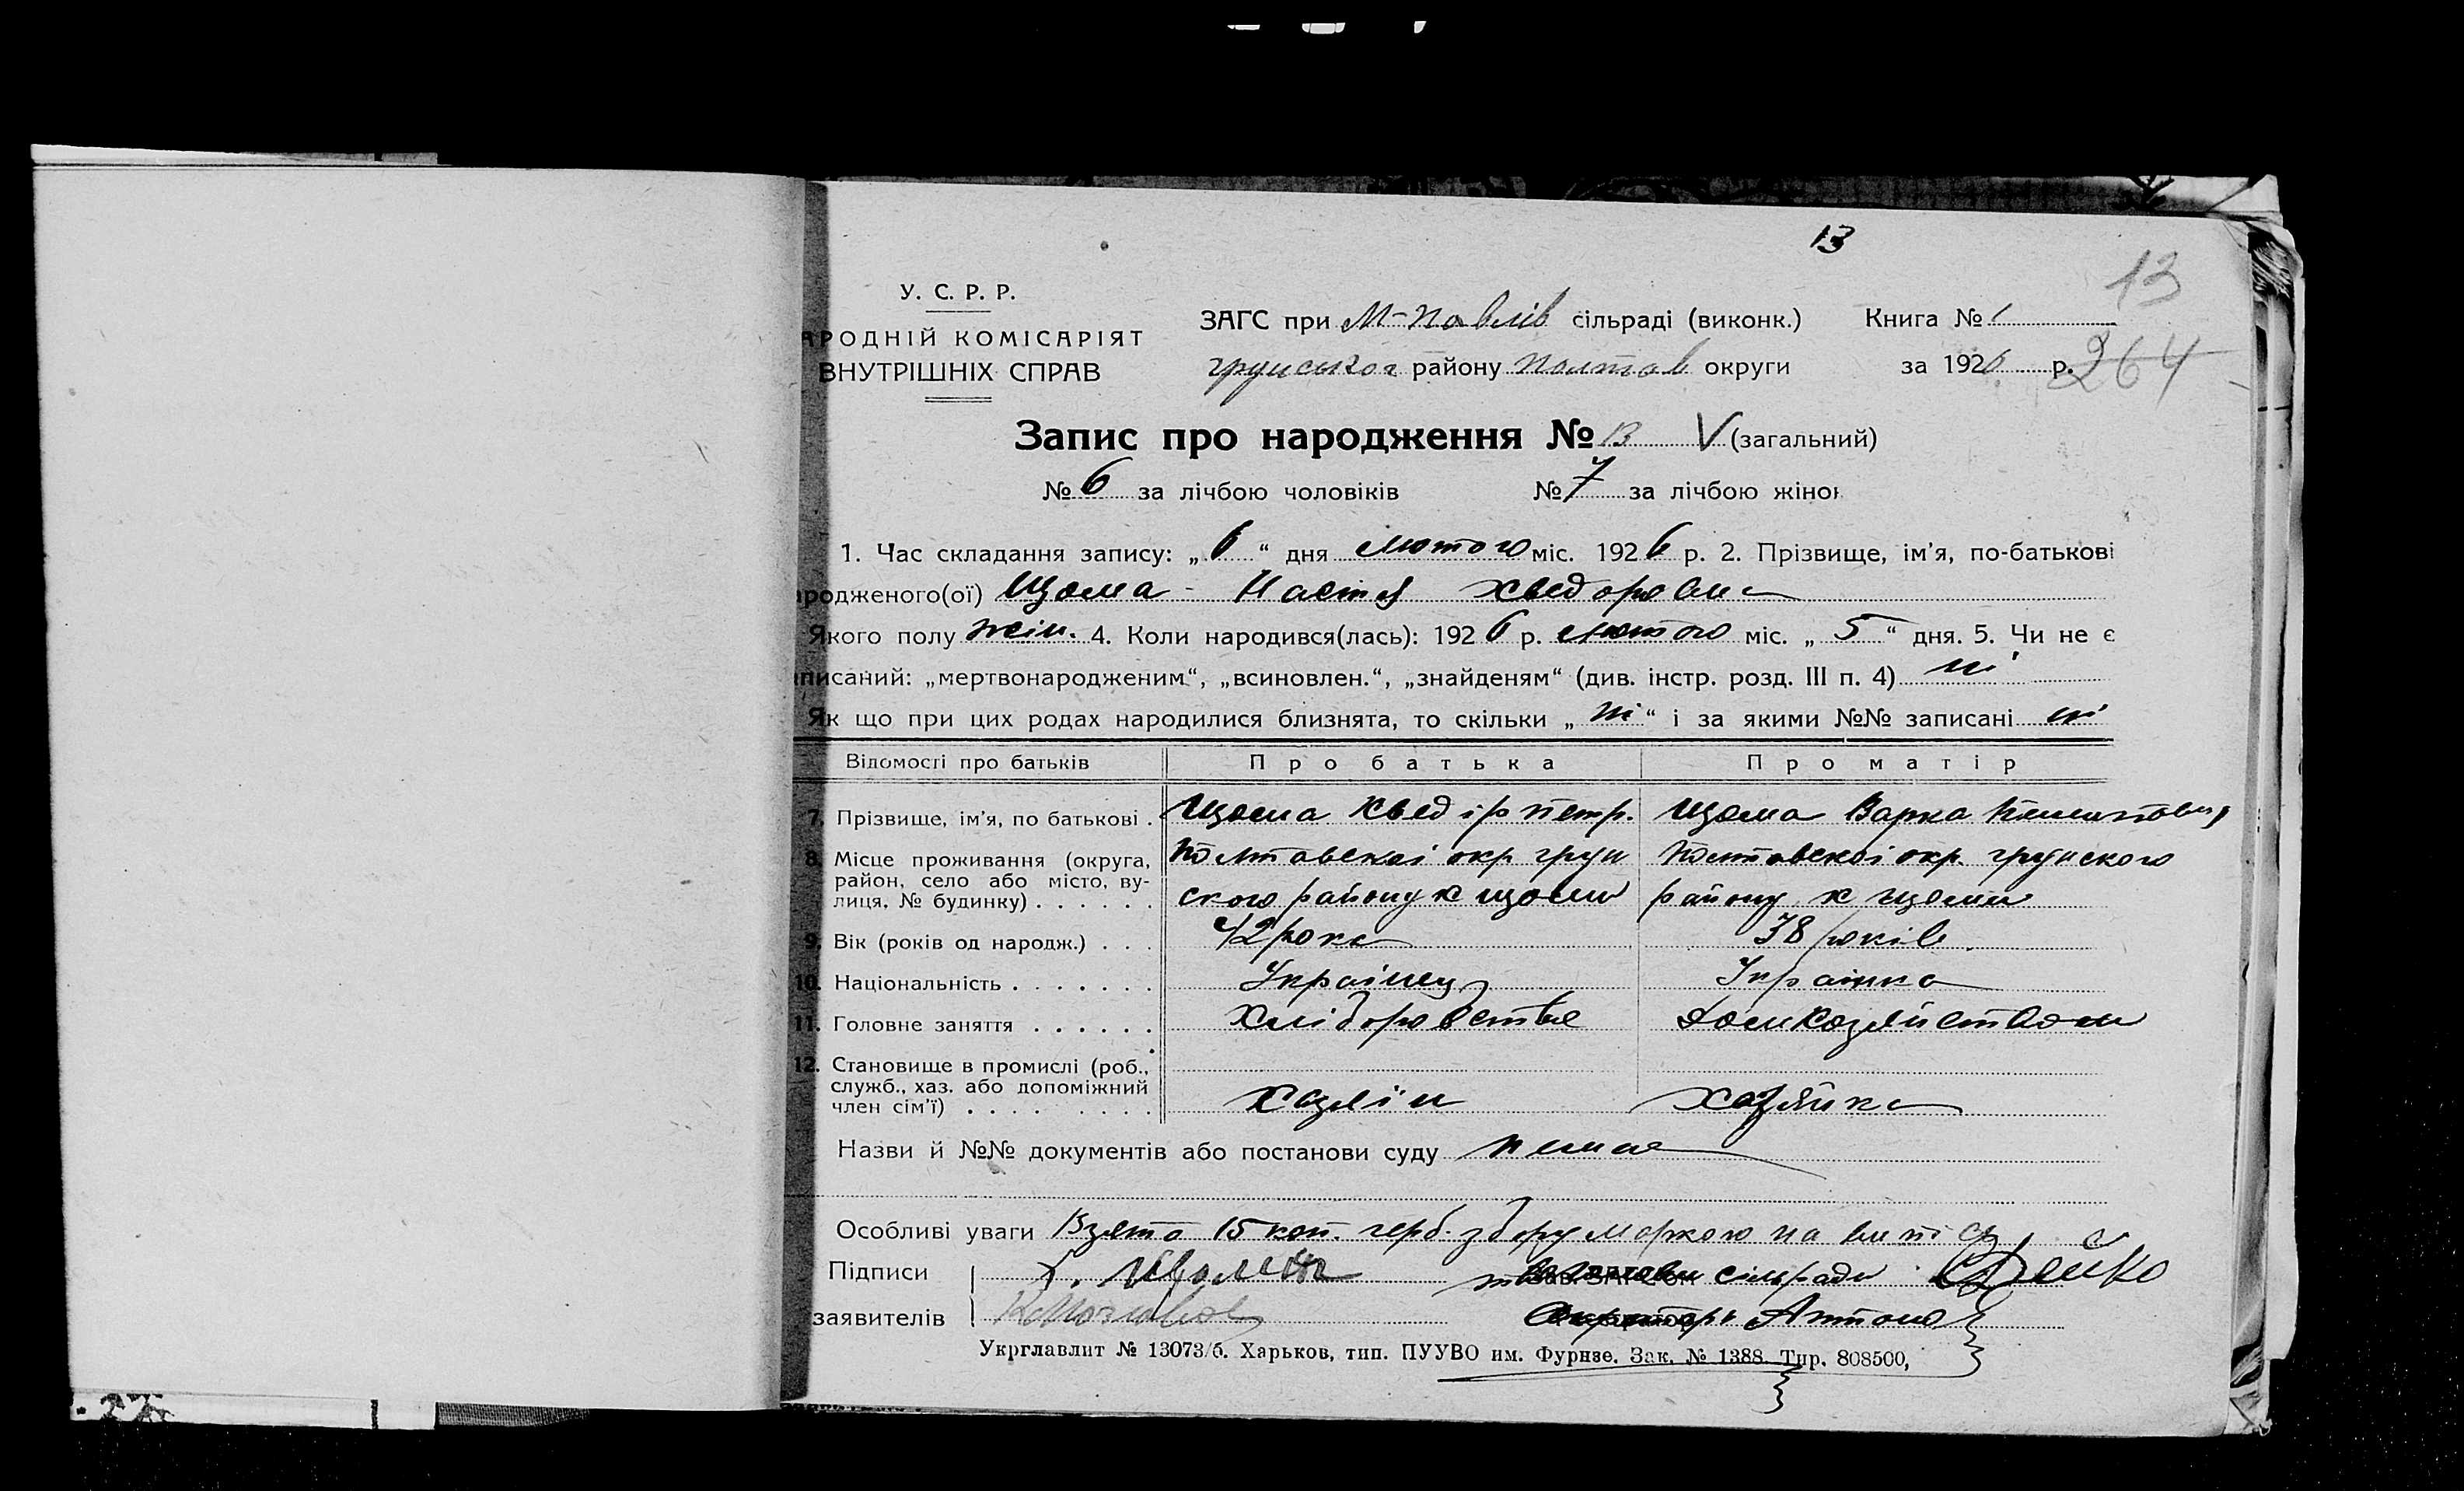 13
13
У. С. Р. Р.
АРОДНІЙ КОМІСАРІЯТ
ВНУТРІШНІХ СПРАВ
ЗАГС при М-Павлів сільраді (виконк.) Книга № 1
грунського району Полтав округи за 1926 р.
264
Запис про народження № 13 V (загальний)
№ 6 за лічбою чоловіків № 7 за лічбою жінок
1. Час складання запису: „ 6 “ дня лютого міс. 1926 р. 2. Прізвище, ім’я, по-батькові
ародженого(ої) Щома - Настя Хведоровна
Якого полу жін. 4. Коли народився(лась): 1926 р. лютого міс. „ 5 “ дня. 5. Чи не є
аписаний: „мертвонародженим“, „всиновлен.“, „знайденям“ (див. інстр. розд. III п. 4) ні
Як що при цих родах народилися близнята, то скільки „ ні “ і за якими №№ записані ні
Відомості про батьків Про батька Про матір
7. Прізвище, ім’я, по батькові . Щома Хведір Петр. Щома Варка
8. Місце проживання (округа, Полтавскоі окр грун Полтавскоі окр. грунского
район, село або місто, ву-
лиця, № будинку) . . . . . . ского району х Щоми району х Щоми
9. Вік (років од народж.) . . . 42 рока 38 років
10. Національність . . . . . . . Українец Українка
11. Головне заняття . . . . . . Хліборобство Домхозяйством
12. Становище в промислі (роб.,
служб., хаз. або допоміжний
член сім’ї) . . . . . . . . . Хазяїн Хазяйка
Назви й №№ документів або постанови суду немае
Особливі уваги Взято 15 коп. герб. збору маркою на
Підписи Х. Щома сільради
заявителів Секретарь
Укрглавлит № 13073/б. Харьков, тип. ПУУВО им. Фурнзе. Зак. № 1388. Тир. 808500,